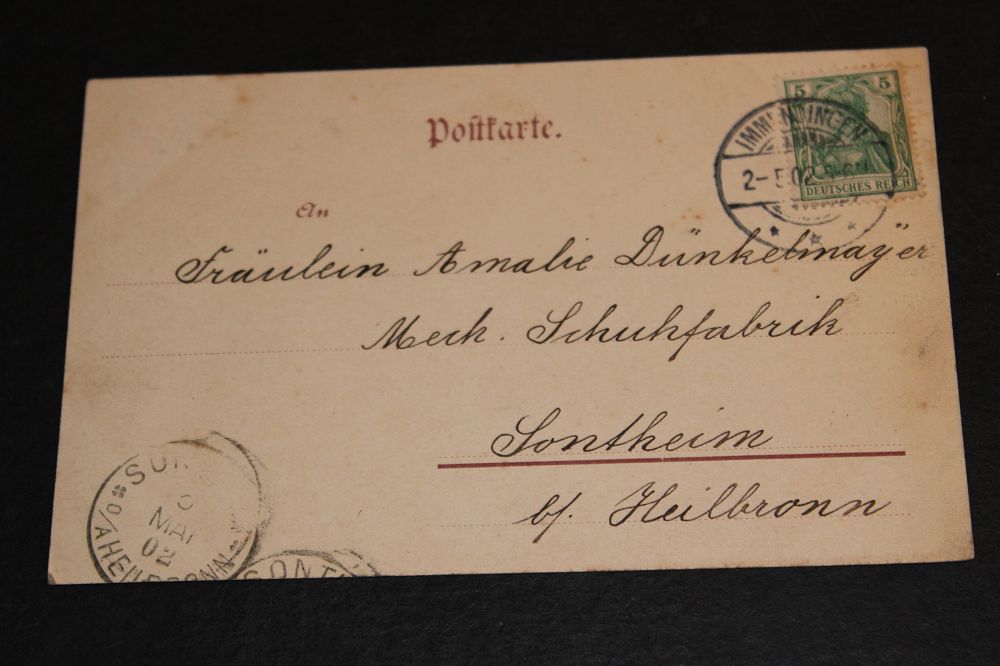 Postkarte.
5 5
DEUTSCHES REICH
IMMENDINGEN
2-5 02
An
Fräulein Amalie Dünkelmayer
Mech. Schuhfabrik
Sontheim
b/ Heilbronn
MAI
02
A/O HEILBRONN
SONTH